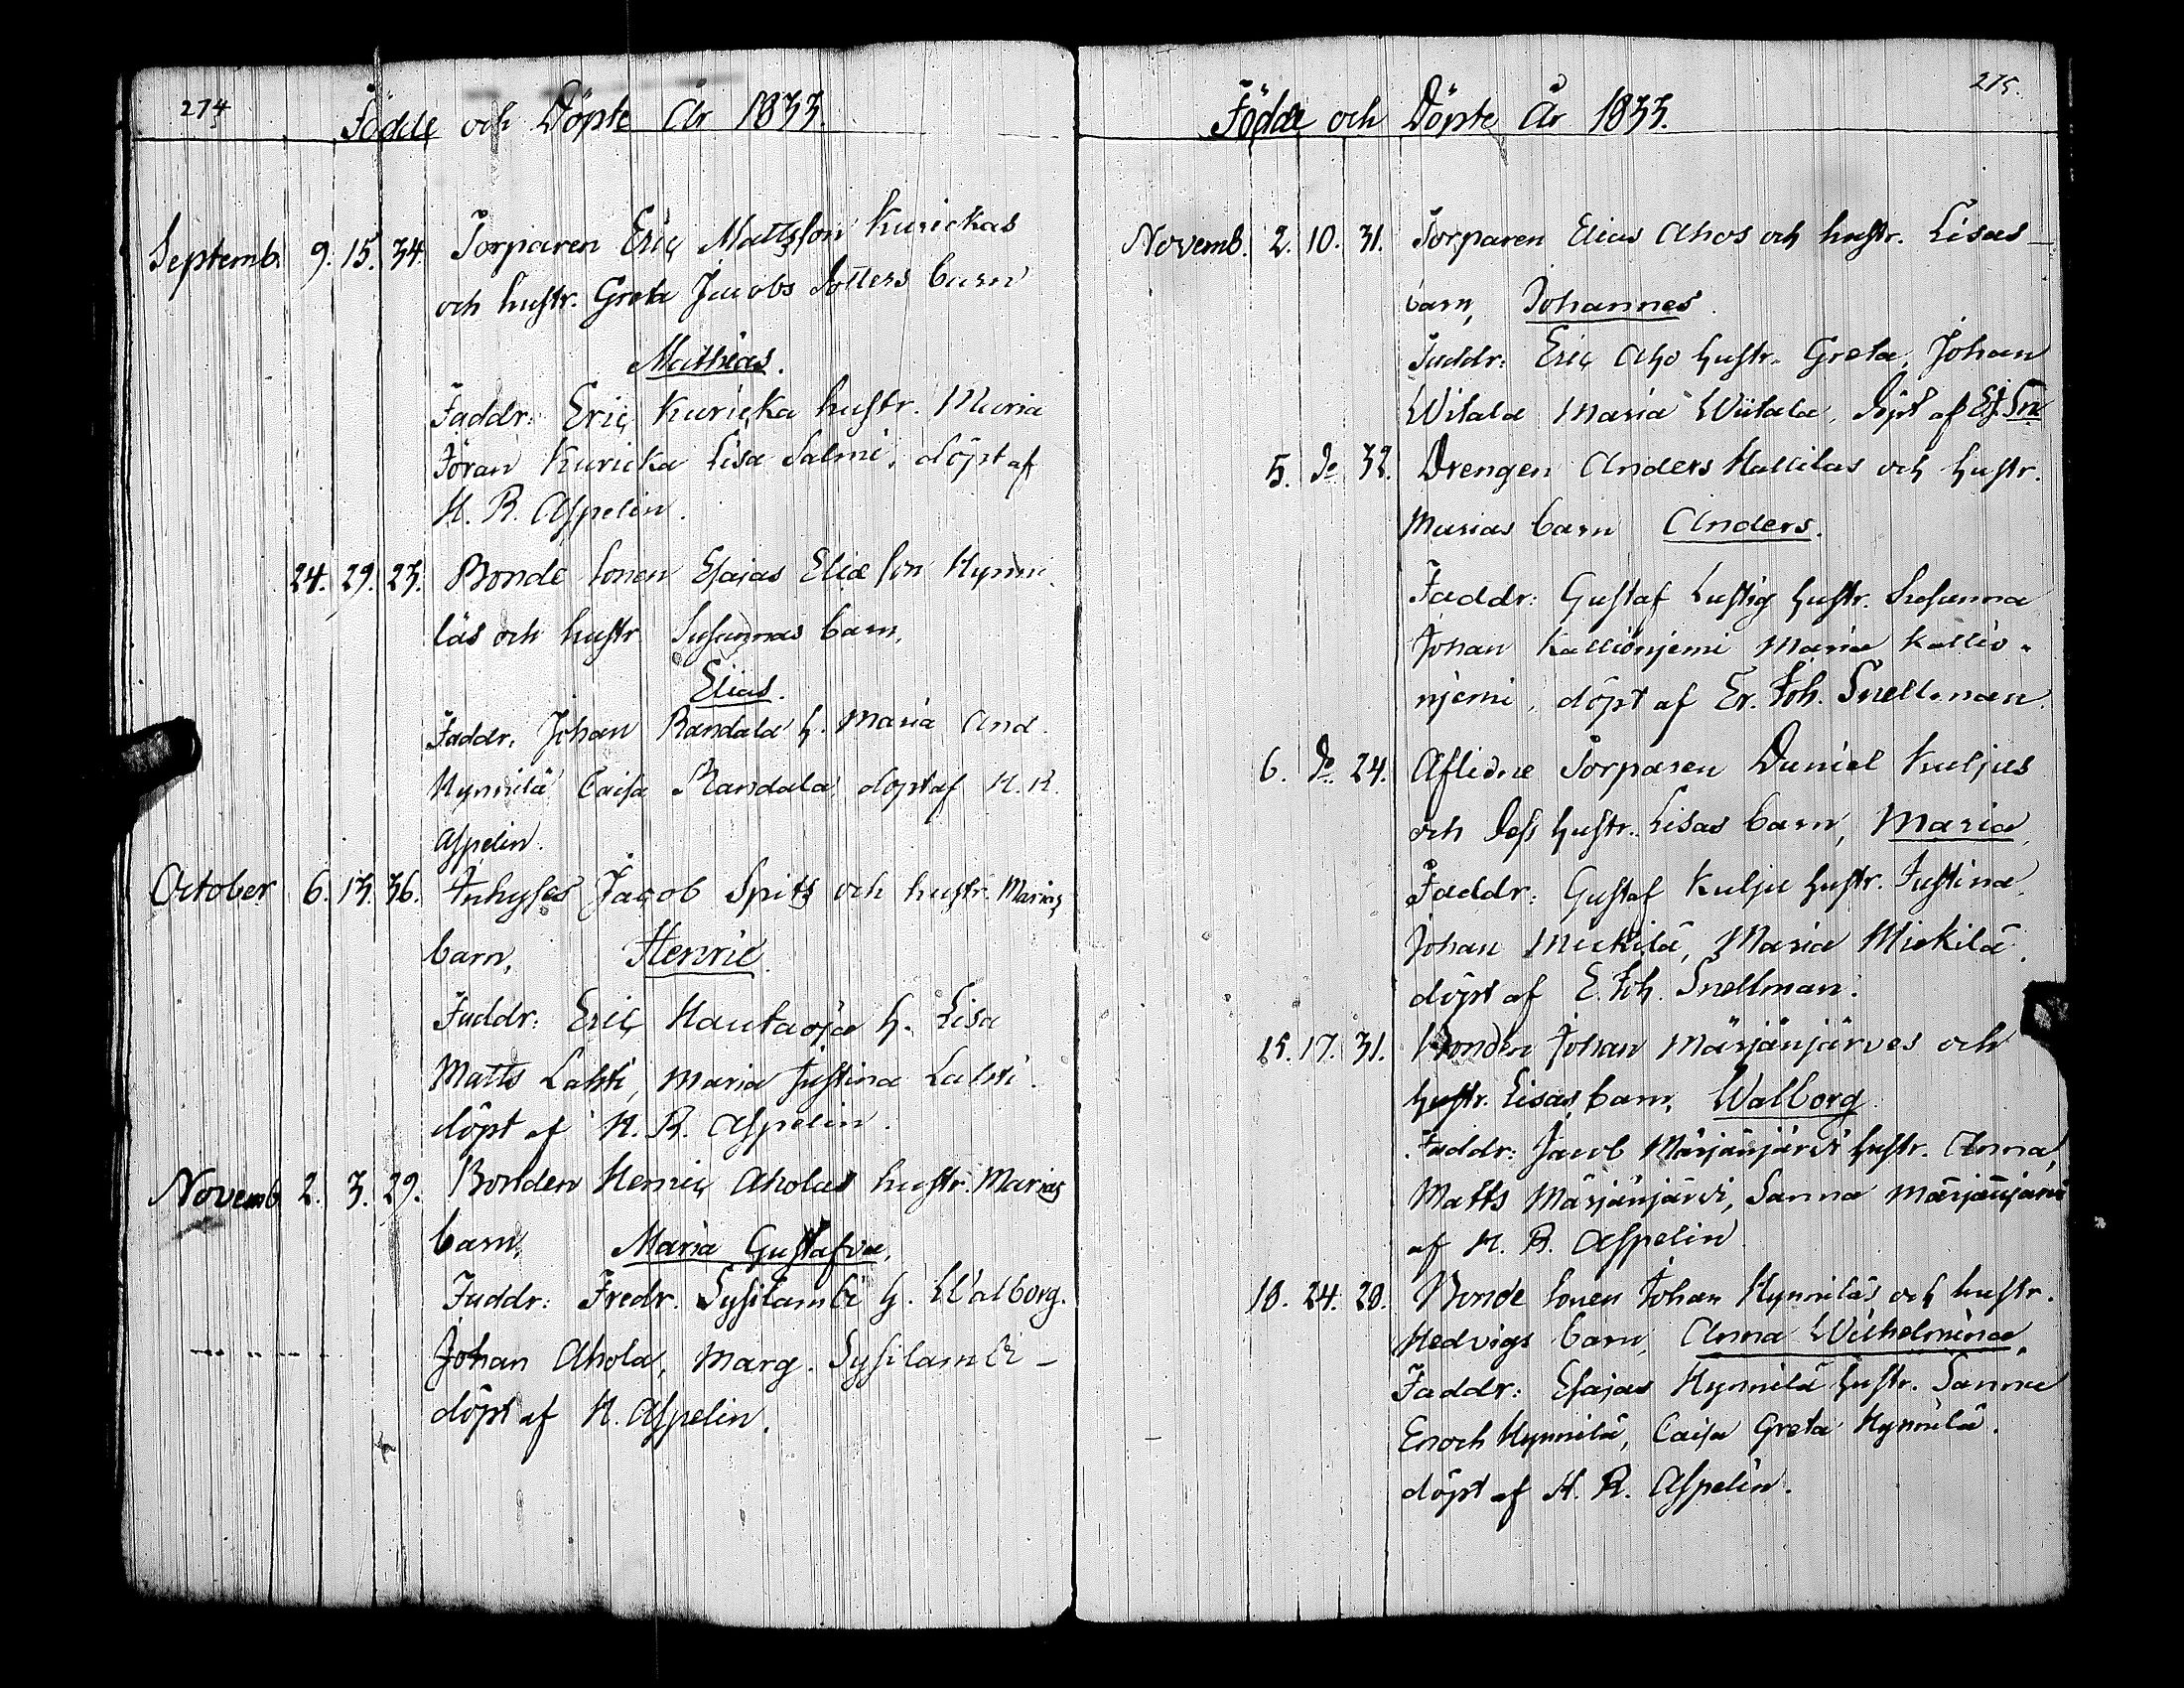 274
Födde och Döpte År 1833.
Septemb. 9. 15. 34. Torparen Eric Mattsson Kurickas
och hustr. Greta Jacobs Dotters barn
Mathias.
Faddr: Eric Kuricka hustr. Maria
Jöran Kuricka Lisa Salmi, döpt af
H. R. Aspelin.
24. 29. 23. Bonde Sonen Esaias Eliæ son Hynni-
läs och hustr Susannas barn,
Elias.
Faddr. Johan Randala h. Maria And.
Hynnilä Caisa Randala, döpt af H. R.
Aspelin.
October 6. 13. 36. Inhyses Jacob Spits och hustr. Marias
barn, Henric
Faddr: Eric Hautaoja h. Lisa
Matts Lahti, Maria Justina Lahti.
döpt af H. R. Aspelin.
Novemb 2. 3. 29. Bonden Henric Aholas hustr. Marias
barn, Maria Gustafva,
Faddr: Fredr. Sysilambi h. Walborg.
Johan Ahola, Marg. Sysilambi -
döpt af H. Aspelin.
275.
Födde och Döpte År 1833.
Novemb. 2. 10. 31. Torparen Elias Ahos och hustr. Lisas
barn, Johannes.
Faddr: Eric Aho hustr. Greta, Johan
Witala Maria Wiitala, döpt af Ej. Sn
5. do 32. Drengen Anders Hallilas och hustr.
Marias barn Anders.
Faddr: Gustaf Lustig hustr. Susanna
Johan Kallionjemi Maria Kallio-
njemi, döpt af Er. Joh. Snellman.
6. do 24. Aflidne Torparen Daniel Kuljus
och dess hustr. Lisas barn, Maria,
Faddr: Gustaf Kulju hustr. Justina,
Johan Mickilä, Maria Mickilä.
döpt af E. Joh. Snellman.
15. 17. 31. Bonden Johan Märjänjärves och
hustr. Lisas barn, Walborg
Faddr: Jacob Märjänjärvi hustr. Anna,
Matts Märjänjärvi, Sanna Märjänjärvi
af H. R. Aspelin
18. 24. 28. Bonde Sonen Johan Hynniläs och hustr.
Hedvigs barn, Anna Wilhelmina,
Faddr: Esajas Hynnilä hustr. Sanna
Enoch Hynnilä, Caisa Greta Hynnilä.
döpt af H. R. Aspelin.